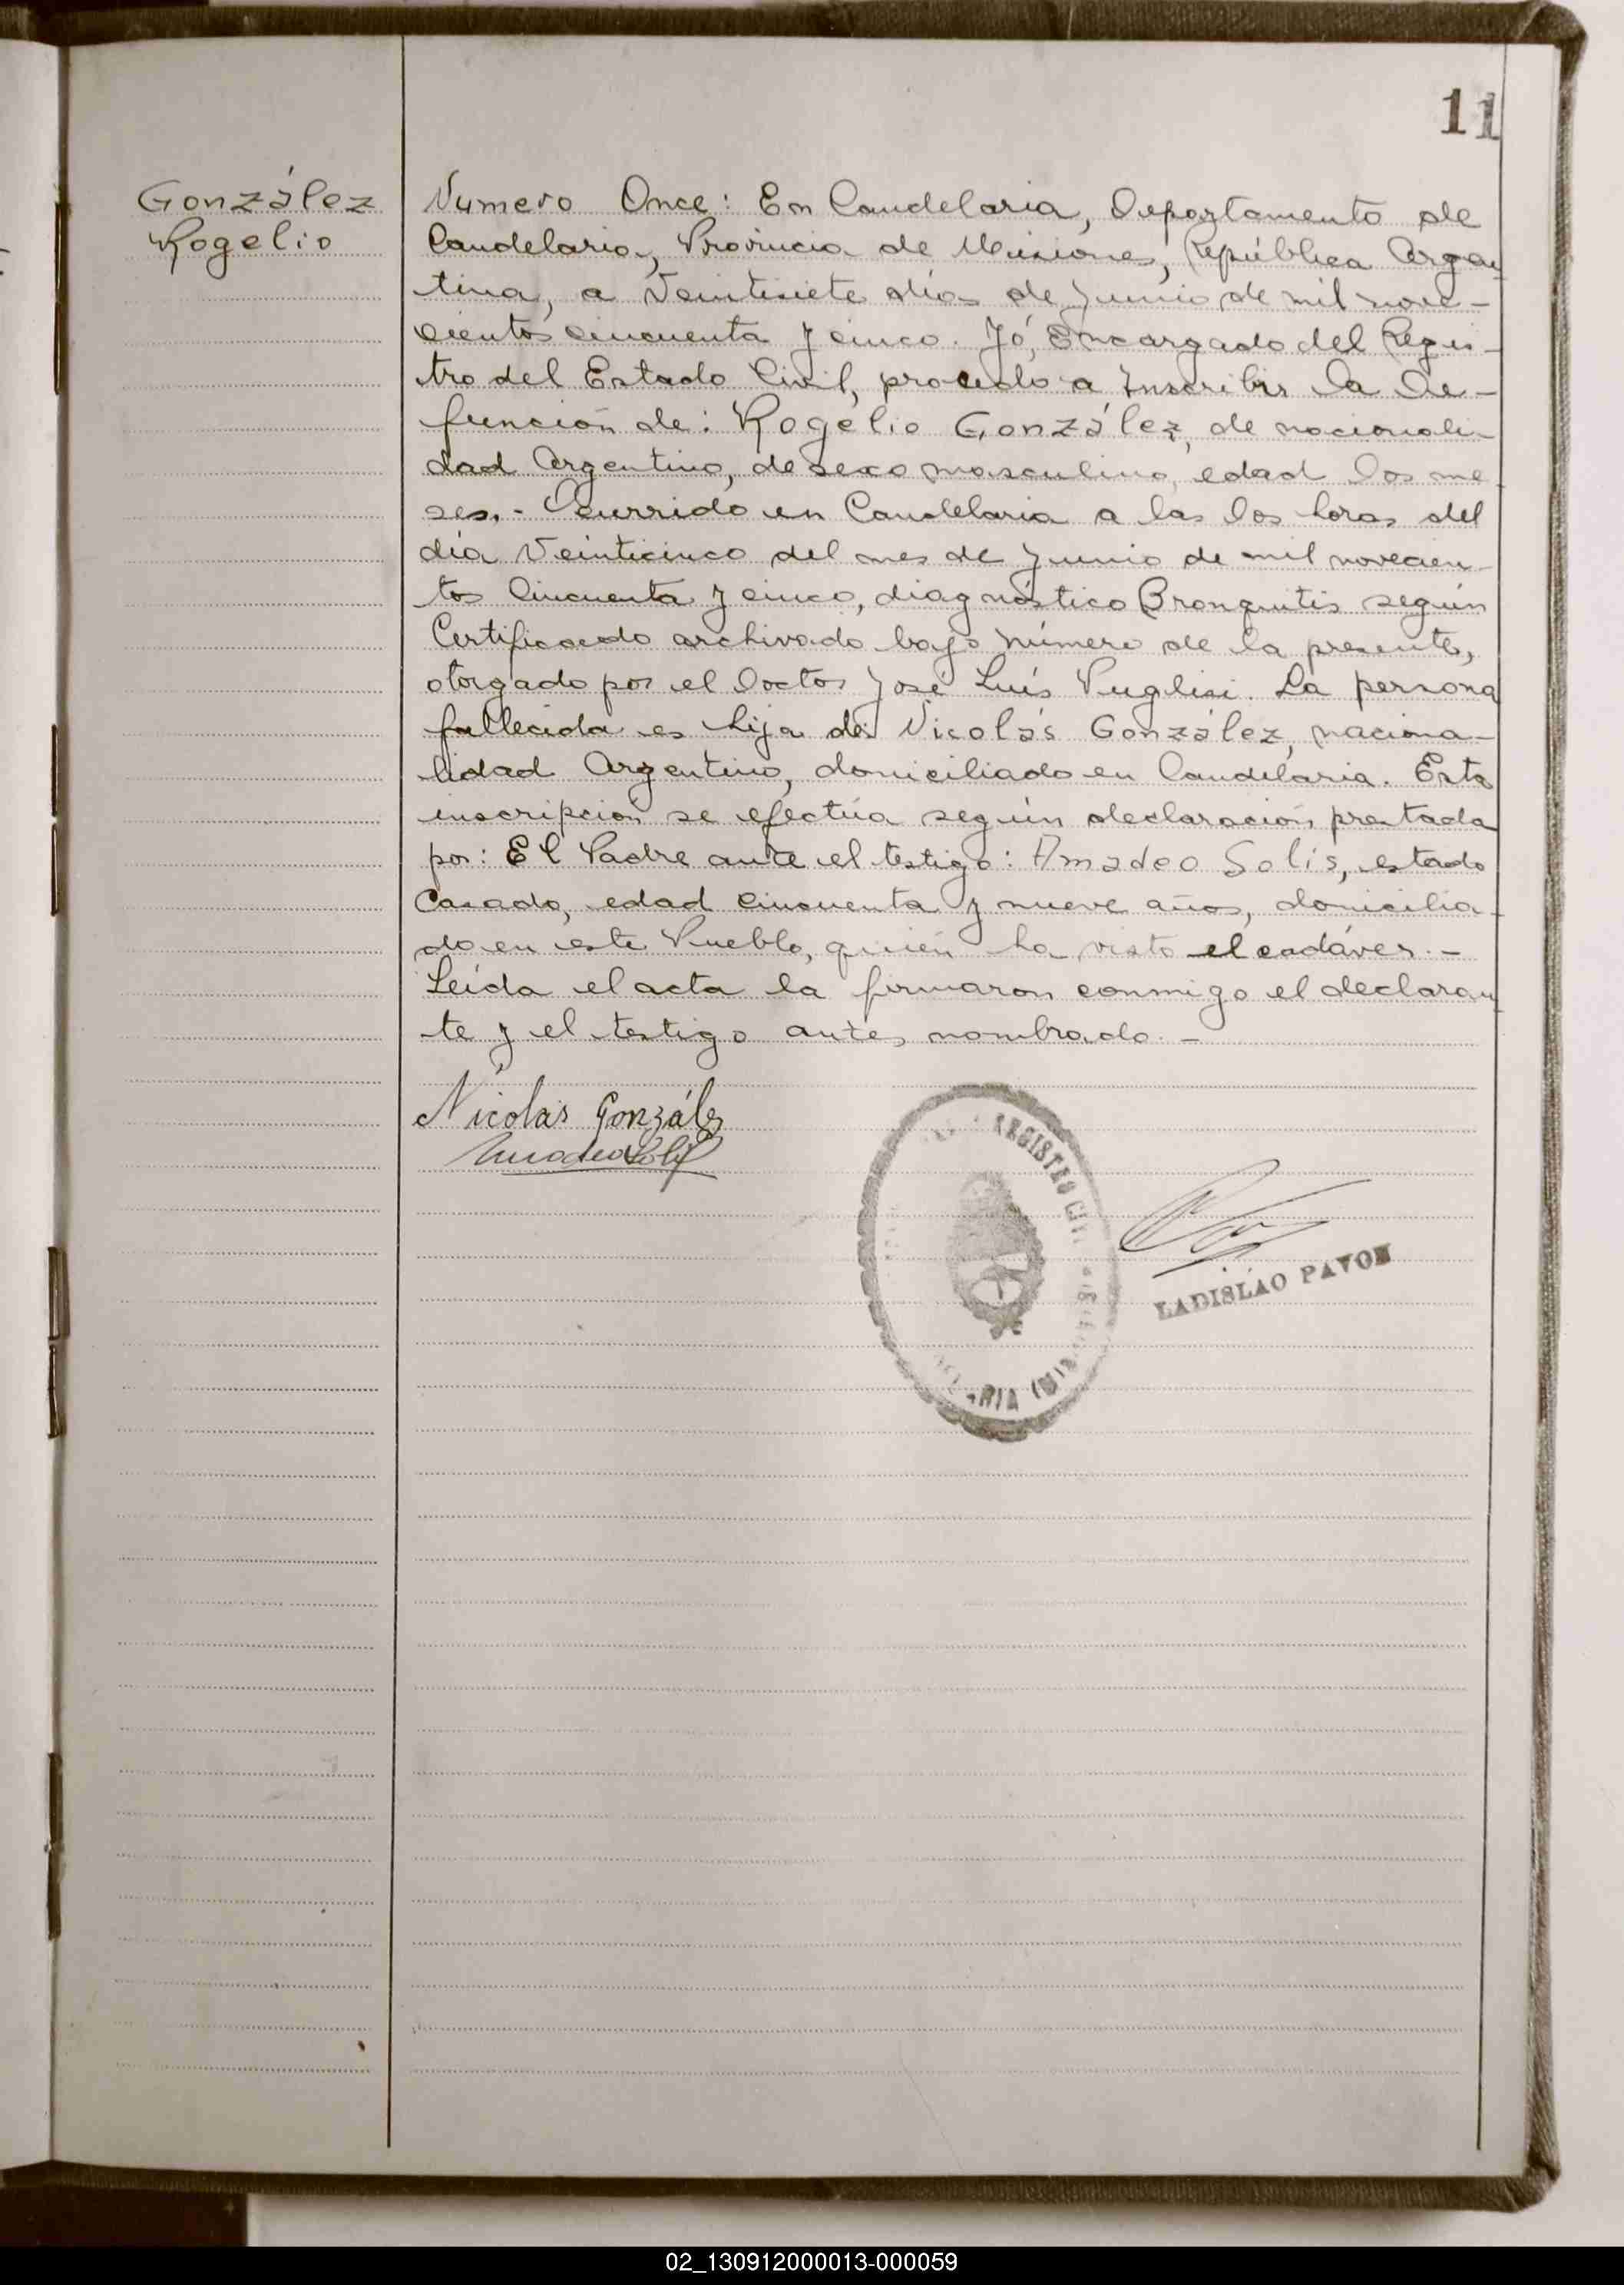 11
González
Rogelio
Numero Once: En Candelaria, Departamento de
Candelaria, Provincia de Misiones, República Argen
tina, a Veintisiete días de Junio de mil nove-
cientos cincuenta y cinco. Yó, Encargado del Regis-
tro del Estado Civil, procedo a Inscribir la De-
función de: Rogelio González, de nacionali-
dad Argentino, de sexo masculino, edad Dos me
ses.- Ocurrido en Candelaria a las Dos horas del
día Veinticinco del mes de Junio de mil novecien-
tos Cincuenta y cinco, diagnóstico Bronquitis según
Certificado archivado bajo número de la presente,
otorgado por el Doctor José Luís Puglisi. La persona
fallecida es hija de: Nicolás González, naciona-
lidad Argentino, domiciliado en Candelaria. Esta
inscripción se efectúa según declaración prestada
por: El Padre ante el testigo: Amadeo Solis, estado
Casado, edad cincuenta y nueve años, domicilia-
do en este Pueblo, quién ha visto el cadáver.-
Leída el acta la firmaron conmigo el declaran
te y el testigo antes nombrado.-
Nicolás González
Amadeo Solis
REGISTRO CIVIL
LADISLAO PAVON
02_130912000013-000059